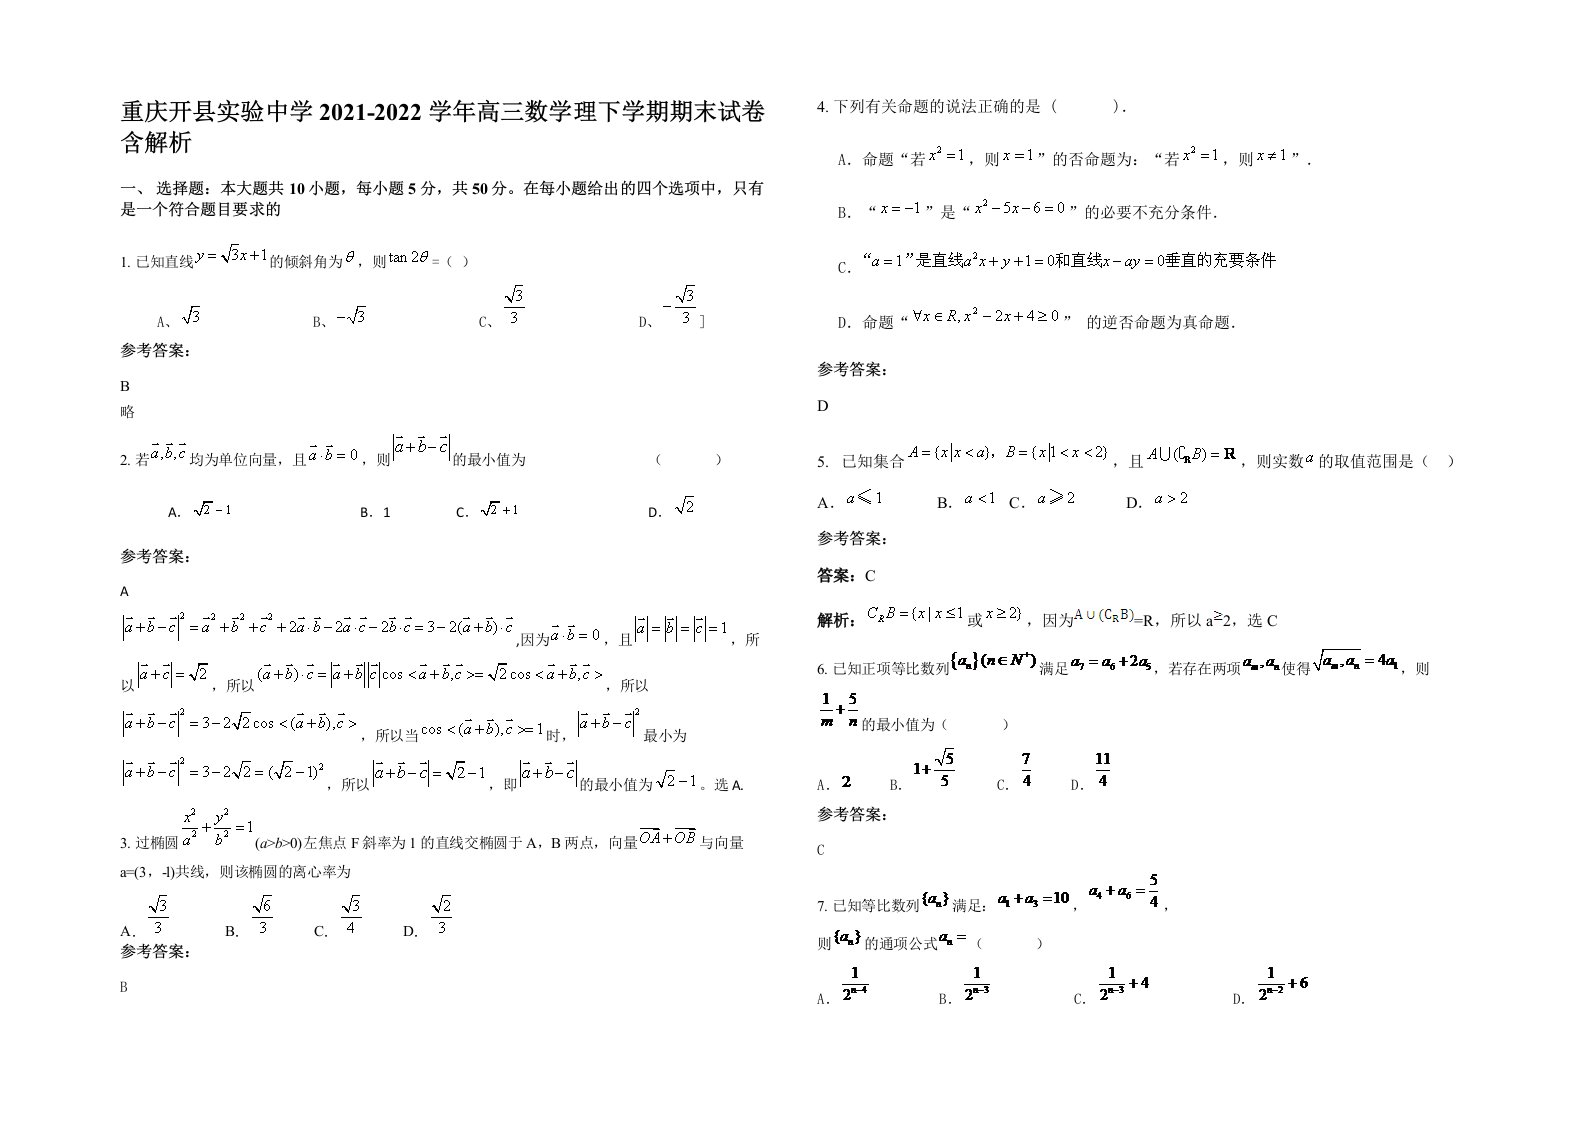 重庆开县实验中学 2021-2022 学年高三数学理下学期期末试卷
含解析
一、 选择题：本大题共 10 小题，每小题 5 分，共 50 分。在每小题给出的四个选项中，只有
是一个符合题目要求的
1. 已知直线 y = √3x+1 的倾斜角为 θ，则 tan 2θ =（ ）
A、√3 B、-√3 C、√3/3 D、-√3/3 ]
参考答案：
B
略
2. 若 a⃗,b⃗,c⃗ 均为单位向量，且 a⃗·b⃗ = 0，则 |a⃗+b⃗-c⃗| 的最小值为 （ ）
A．√2 -1 B．1 C．√2 +1 D．√2
参考答案：
A
|a⃗+b⃗-c⃗|² = a⃗²+b⃗²+c⃗²+2a⃗·b⃗-2a⃗·c⃗-2b⃗·c⃗ = 3-2(a⃗+b⃗)·c⃗ ,因为 a⃗·b⃗ = 0，且 |a⃗| = |b⃗| = |c⃗| = 1，所
以 |a⃗+c⃗| = √2，所以 (a⃗+b⃗)·c⃗ = |a⃗+b⃗||c⃗| cos <a⃗+b⃗,c⃗> = √2 cos <a⃗+b⃗,c⃗>，所以
|a⃗+b⃗-c⃗|² = 3-2√2 cos <(a⃗+b⃗),c⃗>，所以当 cos <(a⃗+b⃗),c⃗> = 1 时，|a⃗+b⃗-c⃗|² 最小为
|a⃗+b⃗-c⃗|² = 3-2√2 = (√2-1)²，所以 |a⃗+b⃗-c⃗| = √2-1，即 |a⃗+b⃗-c⃗| 的最小值为 √2-1。选 A.
3. 过椭圆 x²/a² + y²/b² = 1 (a>b>0)左焦点 F 斜率为 1 的直线交椭圆于 A，B 两点，向量 OA+OB 与向量
a=(3，-l)共线，则该椭圆的离心率为
A．√3/3 B．√6/3 C．√3/4 D．√2/3
参考答案：
B
4. 下列有关命题的说法正确的是（ ）．
A．命题“若 x² =1，则 x =1”的否命题为：“若 x² =1，则 x ≠1”．
B．“ x = -1”是“ x² -5x -6 = 0”的必要不充分条件．
C．“a = 1”是直线a²x + y +1 = 0和直线x - ay = 0垂直的充要条件
D．命题“ ∀x ∈ R, x² -2x +4 ≥ 0” 的逆否命题为真命题．
参考答案：
D
5. 已知集合 A = {x|x < a}，B = {x|1 < x < 2}，且 A∪(∁RB) = R，则实数 a 的取值范围是（ ）
A．a≤1 B．a <1 C．a≥2 D．a > 2
参考答案：
答案：C
解析：CRB = {x | x ≤1 或 x ≥ 2}，因为 A∪(CRB)=R，所以 a≥2，选 C
6. 已知正项等比数列 {aₙ}(n∈N⁺) 满足 a₇ = a₆ + 2a₅，若存在两项 aₘ, aₙ 使得 √(aₘ, aₙ) = 4a₁，则
1/m + 5/n 的最小值为（ ）
A．2 B．1+√5/5 C．7/4 D．11/4
参考答案：
C
7. 已知等比数列 {aₙ} 满足：a₁ + a₃ =10，a₄ + a₆ = 5/4，
则 {aₙ} 的通项公式 aₙ =（ ）
A．1/2ⁿ⁻⁴ B．1/2ⁿ⁻³ C．1/2ⁿ⁻³ + 4 D．1/2ⁿ⁻² + 6